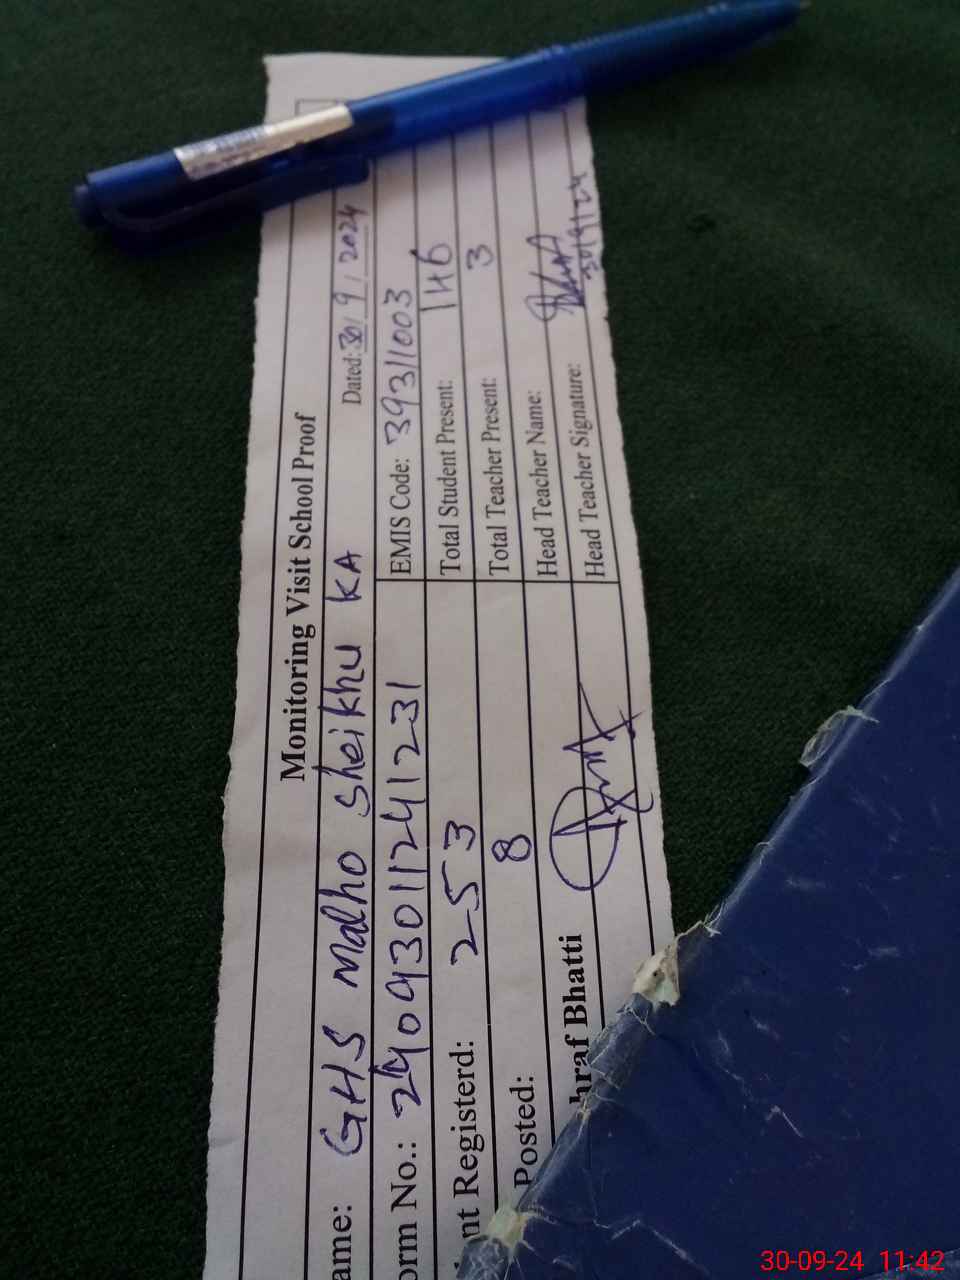 Monitoring Visit School Proof
ame: GHS Malho sheikhu KA Dated: 30/9/2024
orm No.: 24093011241231 EMIS Code: 39311003
nt Registerd: 253 Total Student Present: 146
Posted: 8 Total Teacher Present: 3
hraf Bhatti Head Teacher Name:
Head Teacher Signature: 30/9/24
30-09-24 11:42